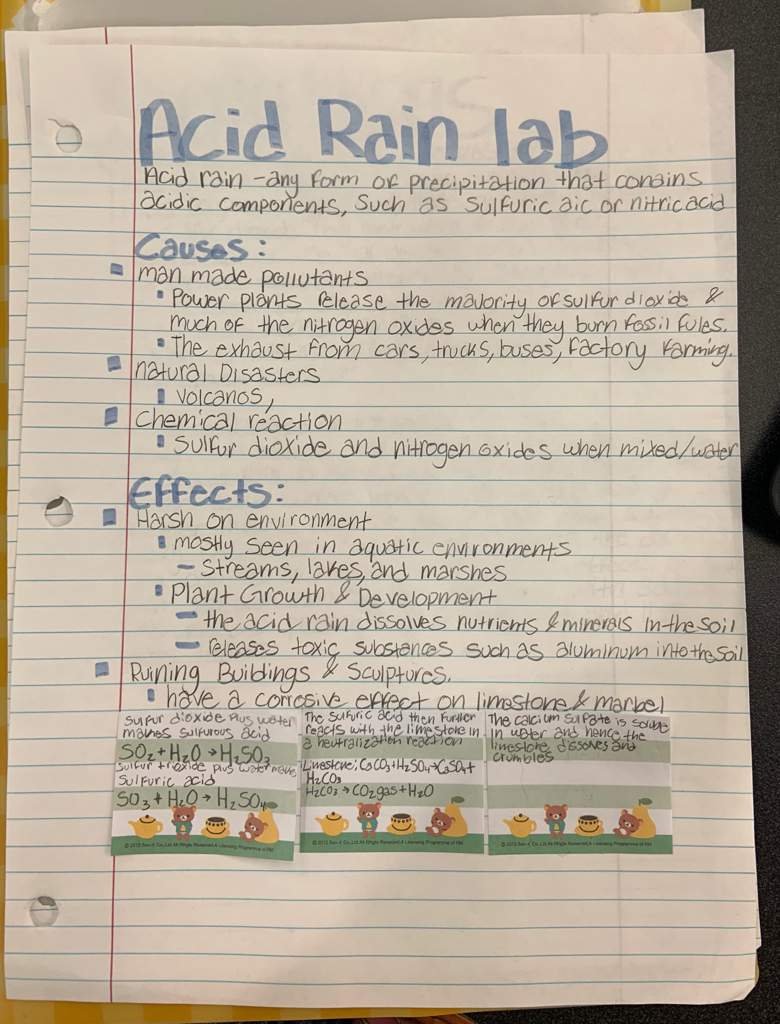 Acid Rain lab
Acid rain - any form of precipitation that conains
acidic components, such as sulfuric aic or nitric acid
Causes:
man made pollutants
Power plants release the majority of sulfur dioxide &
much of the nitrogen oxides when they burn fossil fules.
The exhaust from cars, trucks, buses, factory farming.
natural Disasters
Volcanos,
Chemical reaction
Sulfur dioxide and nitrogen oxides when mixed/water
Effects:
Harsh on environment
mostly seen in aquatic environments
- Streams, lakes, and marshes
Plant Growth & Development
- the acid rain dissolves nutrients & minerals in the soil
- releases toxic substances such as aluminum into the soil
Ruining Buildings & Sculptures.
have a corrosive effect on limestone & marbel
Sulfur dioxide plus water
makes sulfurous acid
SO₂ + H₂O → H₂SO₃
Sulfur trioxide plus water make
Sulfuric acid
SO₃ + H₂O → H₂SO₄
© 2013 San-X Co., Ltd. All Rights Reserved.
The sulfuric acid then further
reacts with the limestone in
a neutralization reaction
Limestone: CaCO₃+H₂SO₄→CaSO₄+
H₂CO₃
H₂CO₃ → CO₂ gas + H₂O
© 2013 San-X Co., Ltd. All Rights Reserved.
The calcium sulfate is soluble
in water and hence the
limestone dissolves and
crumbles
© 2013 San-X Co., Ltd. All Rights Reserved.